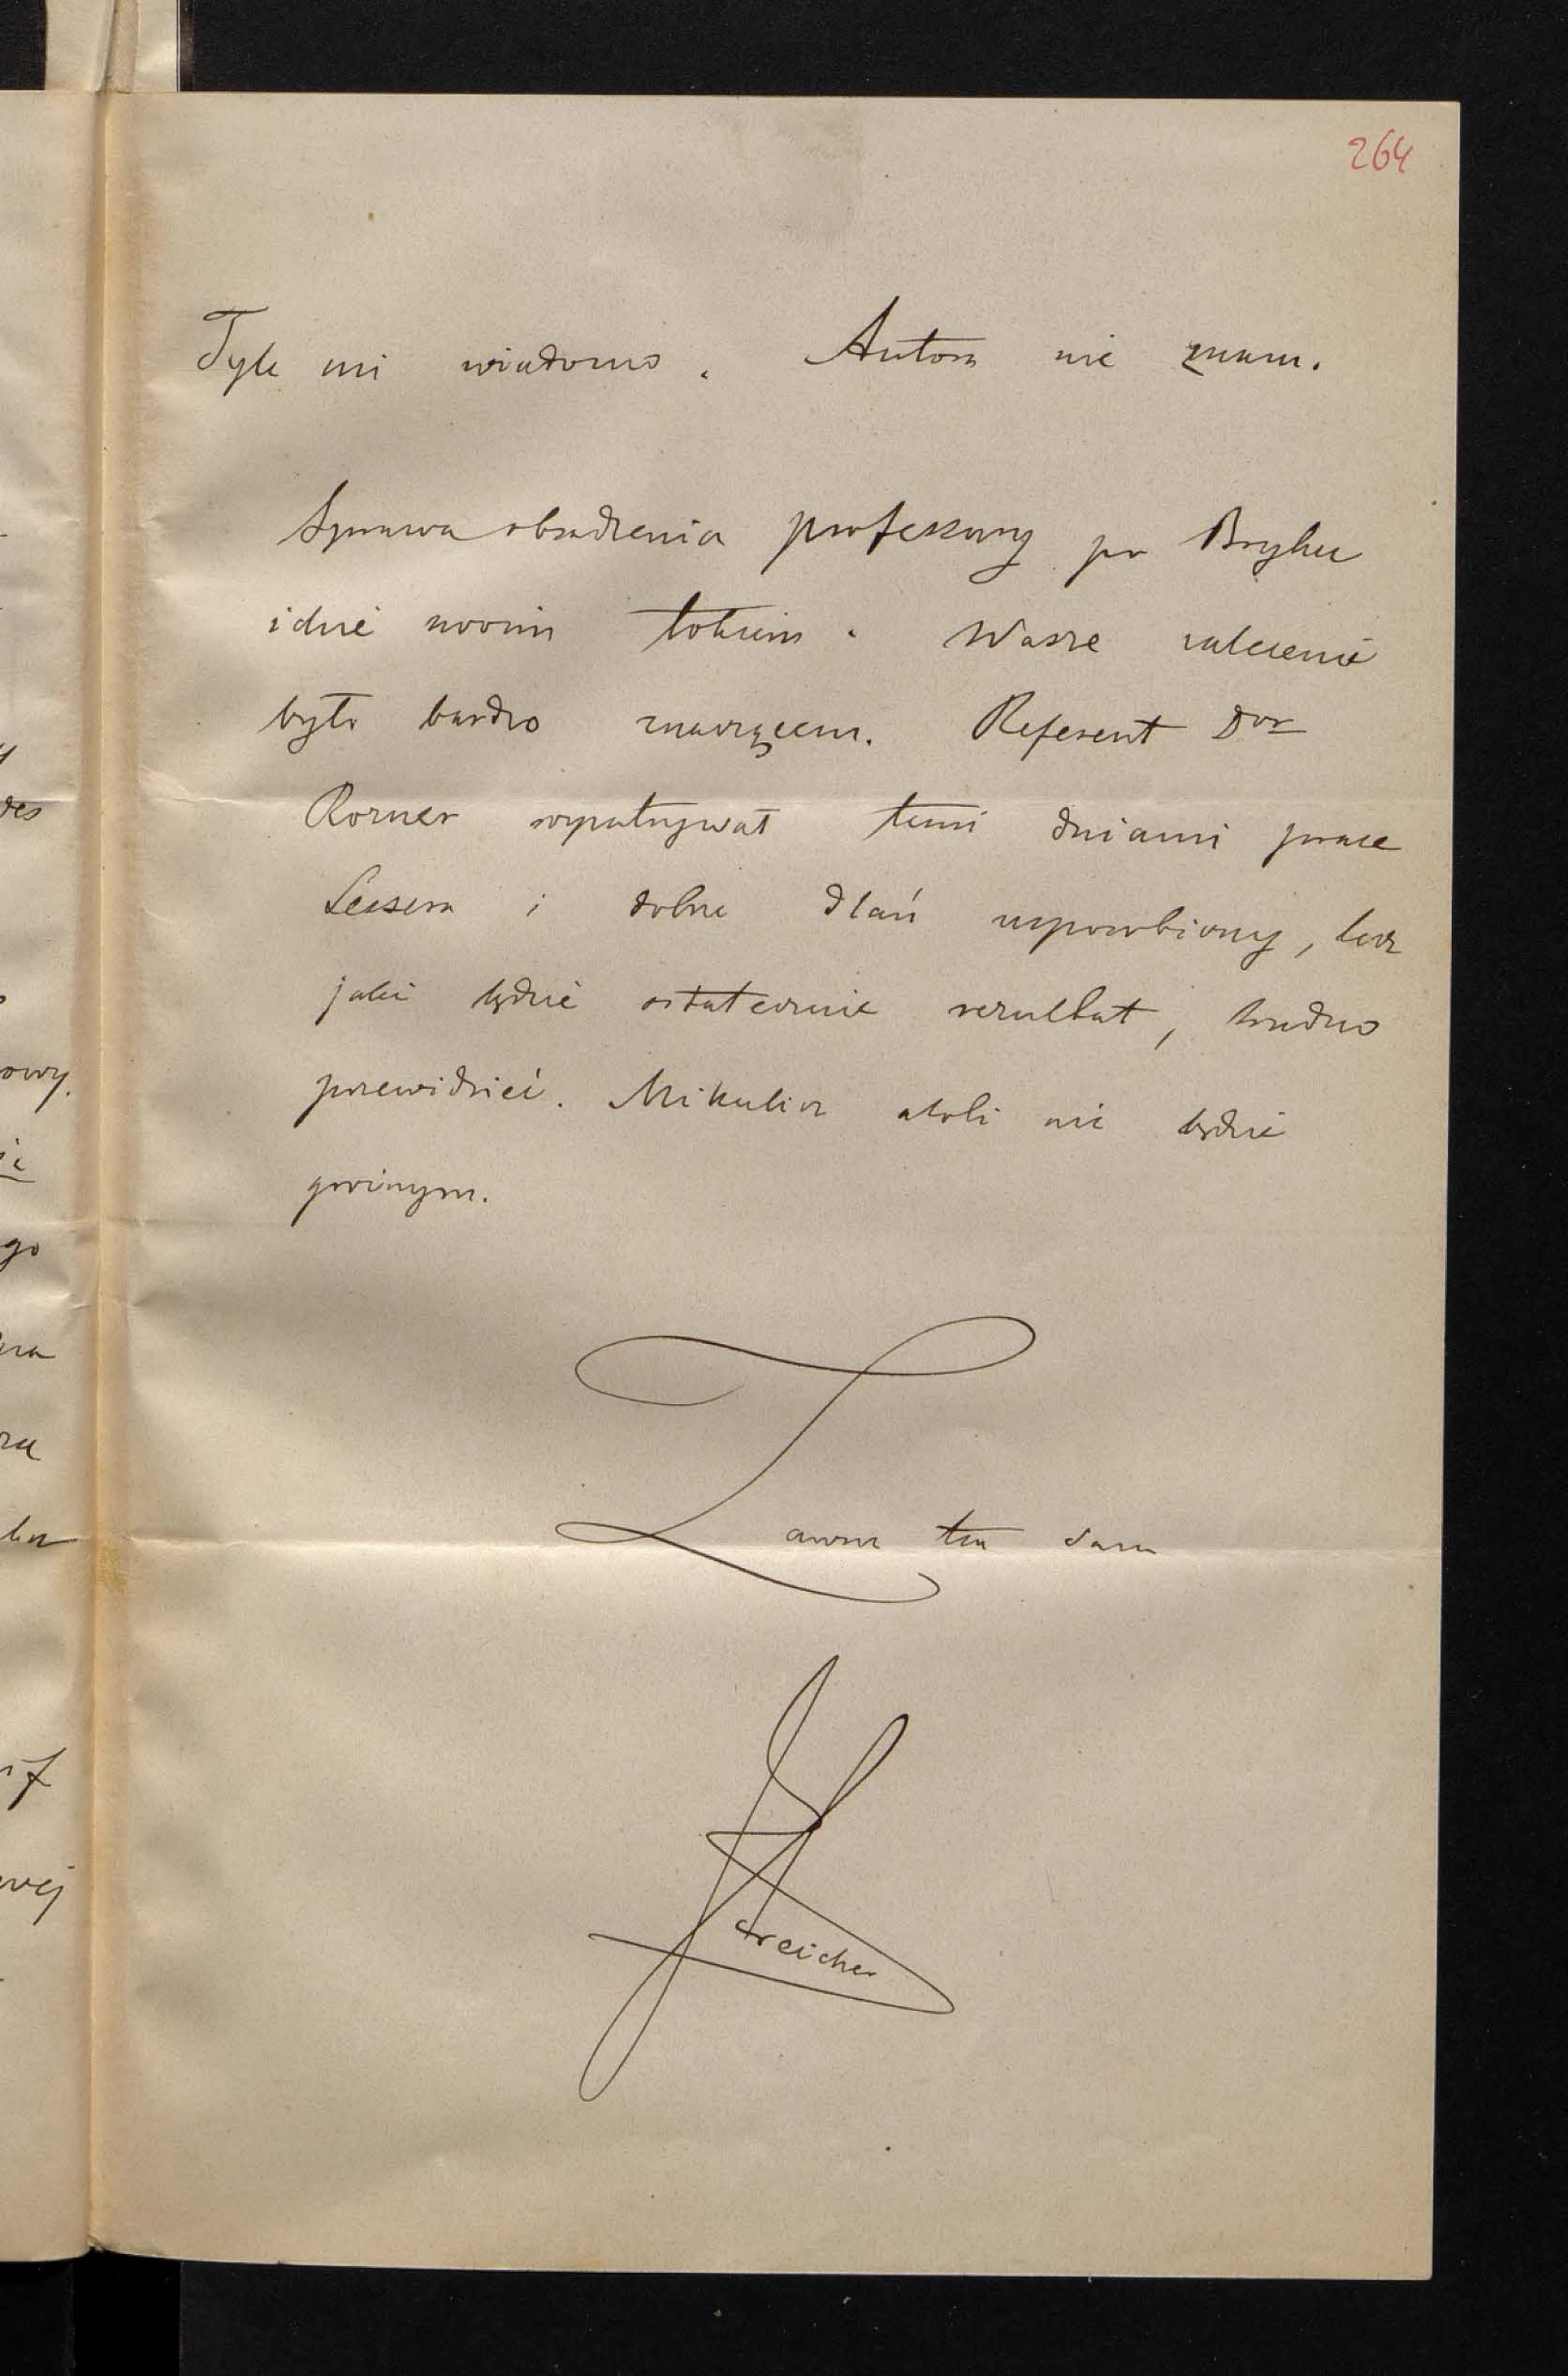 264
Tyle mi wiadomo. Autora nie znam.
Sprawa obsadzenia professury po Bryku
idzie swoim tokiem. Wasze zalecenie
było bardzo znaczącem. Referent Dor
Rozner wypatrywał temi dniami prace
Lessera i dobrze dlań usposobiony, lecz
jaki będzie ostatecznie rezultat, trudno
przewidzieć. Mikulicz atoli nie będzie
gminnym.
Zawsze ten sam
Estreicher